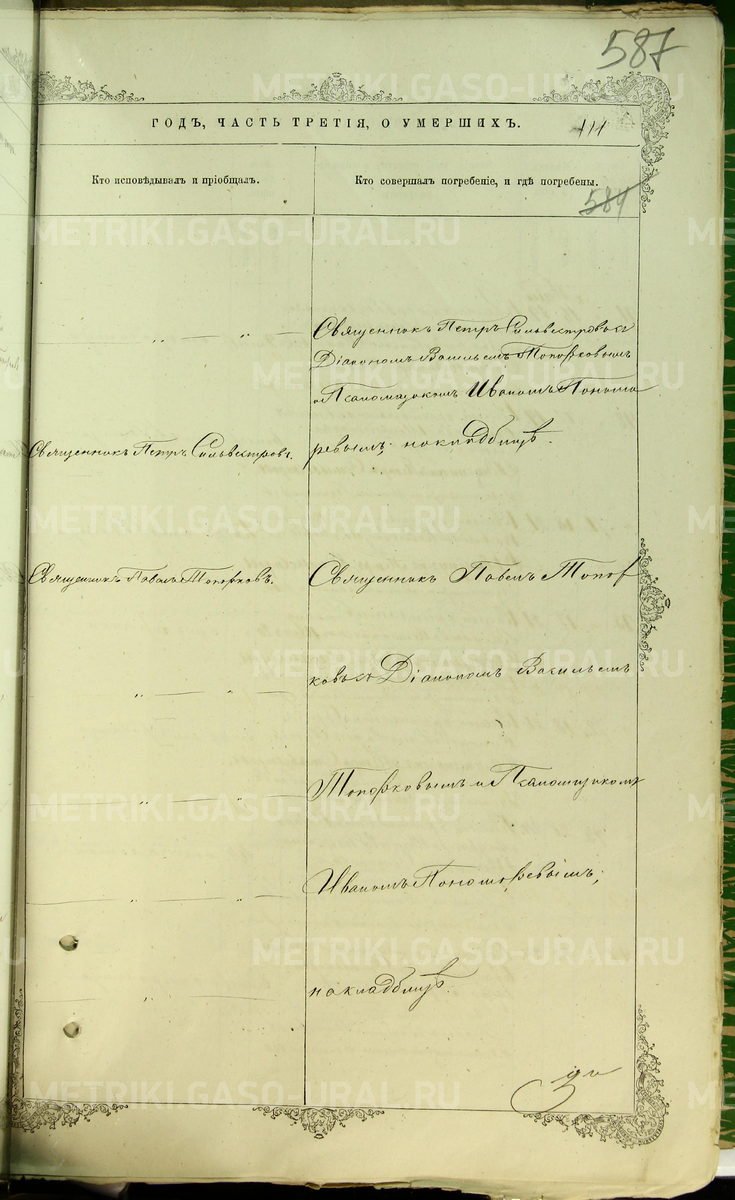 587
ГОДЪ, ЧАСТЬ ТРЕТІЯ, О УМЕРШИХЪ.
111
Кто исповѣдывалъ и пріобщалъ.
Кто совершалъ погребеніе, и гдѣ погребены.
584
Священникъ Петръ Сильвестровъ съ
Діакономъ Васильемъ Топорковымъ
и Псаломщикомъ Иваномъ Понома
Священникъ Петръ Сильвестровъ.
ревымъ; на кладбищѣ.
Священникъ Павелъ Топорковъ.
Священникъ Павелъ Топор
ковъ съ Діакономъ Васильемъ
Топорковымъ и Псаломщикомъ
Иваномъ Пономаревымъ;
на кладбищѣ.
METRIKI.GASO-URAL.RU